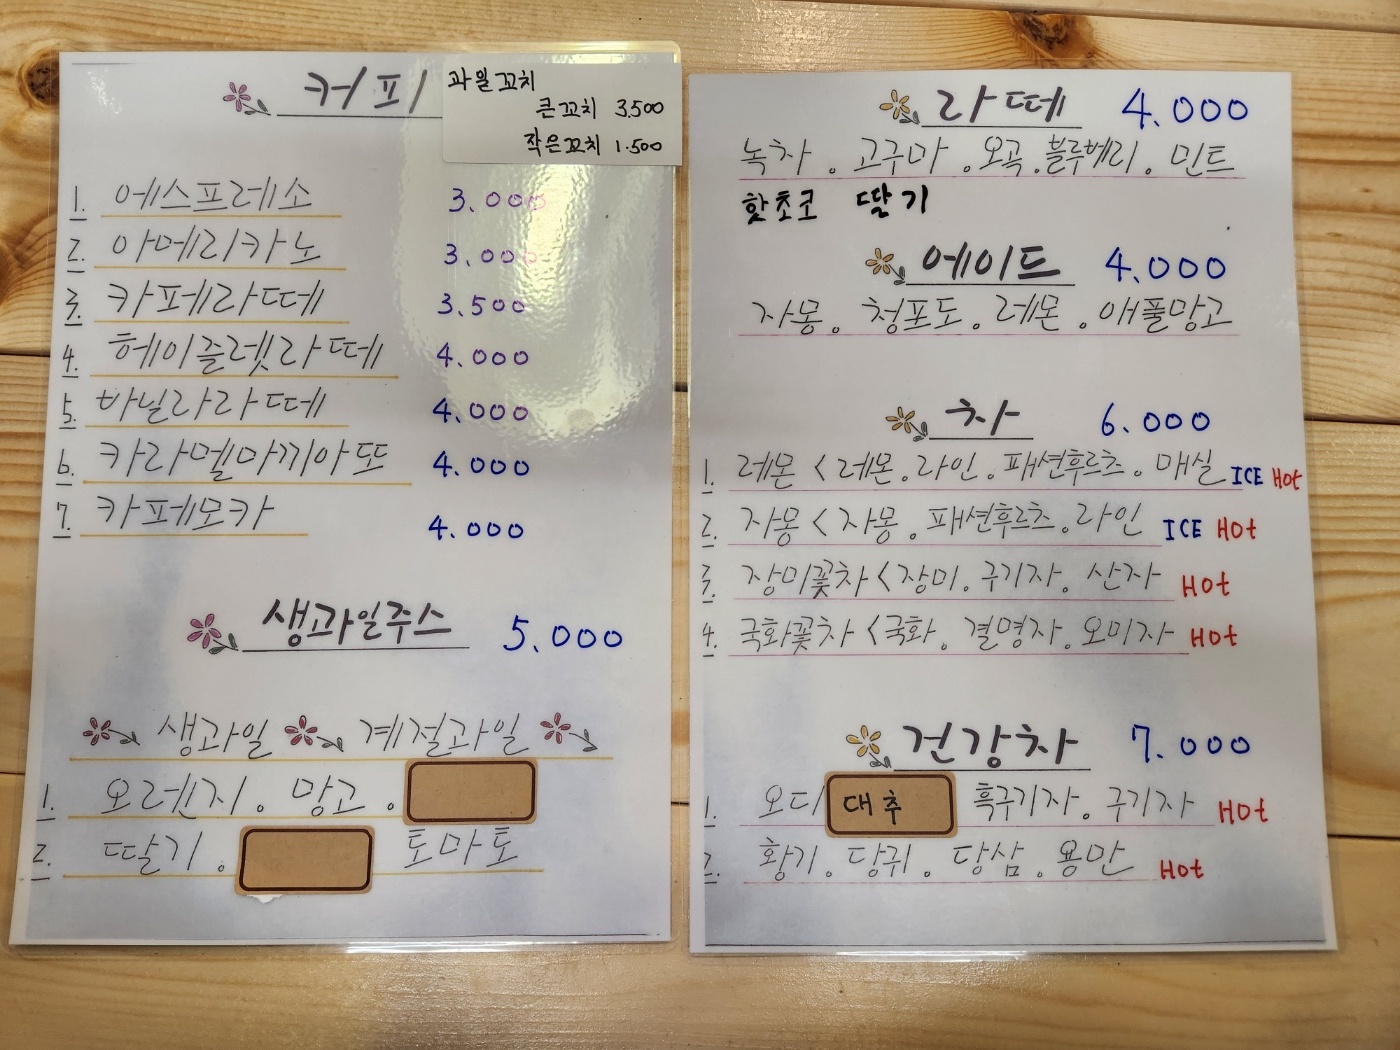 커피
과일꼬치
큰꼬치 3.500
작은꼬치 1.500
1. 에스프레소 3.000
2. 아메리카노 3.000
3. 카페라떼 3.500
4. 헤이즐렛라떼 4.000
5. 바닐라라떼 4.000
6. 카라멜마끼아또 4.000
7. 카페모카 4.000
생과일주스 5.000
생과일 계절과일
1. 오렌지. 망고.
2. 딸기. 토마토
라떼 4.000
녹차. 고구마. 오곡. 블루베리. 민트
핫초코 딸기
에이드 4.000
자몽. 청포도. 레몬. 애플망고
차 6.000
1. 레몬 < 레몬. 라인. 패션후르츠. 매실 ICE Hot
2. 자몽 < 자몽. 패션후르츠. 라인 ICE Hot
3. 장미꽃차 < 장미. 구기자. 산자 Hot
4. 국화꽃차 < 국화. 결명자. 오미자 Hot
건강차 7.000
1. 오디 대추 흑구기자. 구기자 Hot
2. 황기. 당귀. 당삼. 용안 Hot